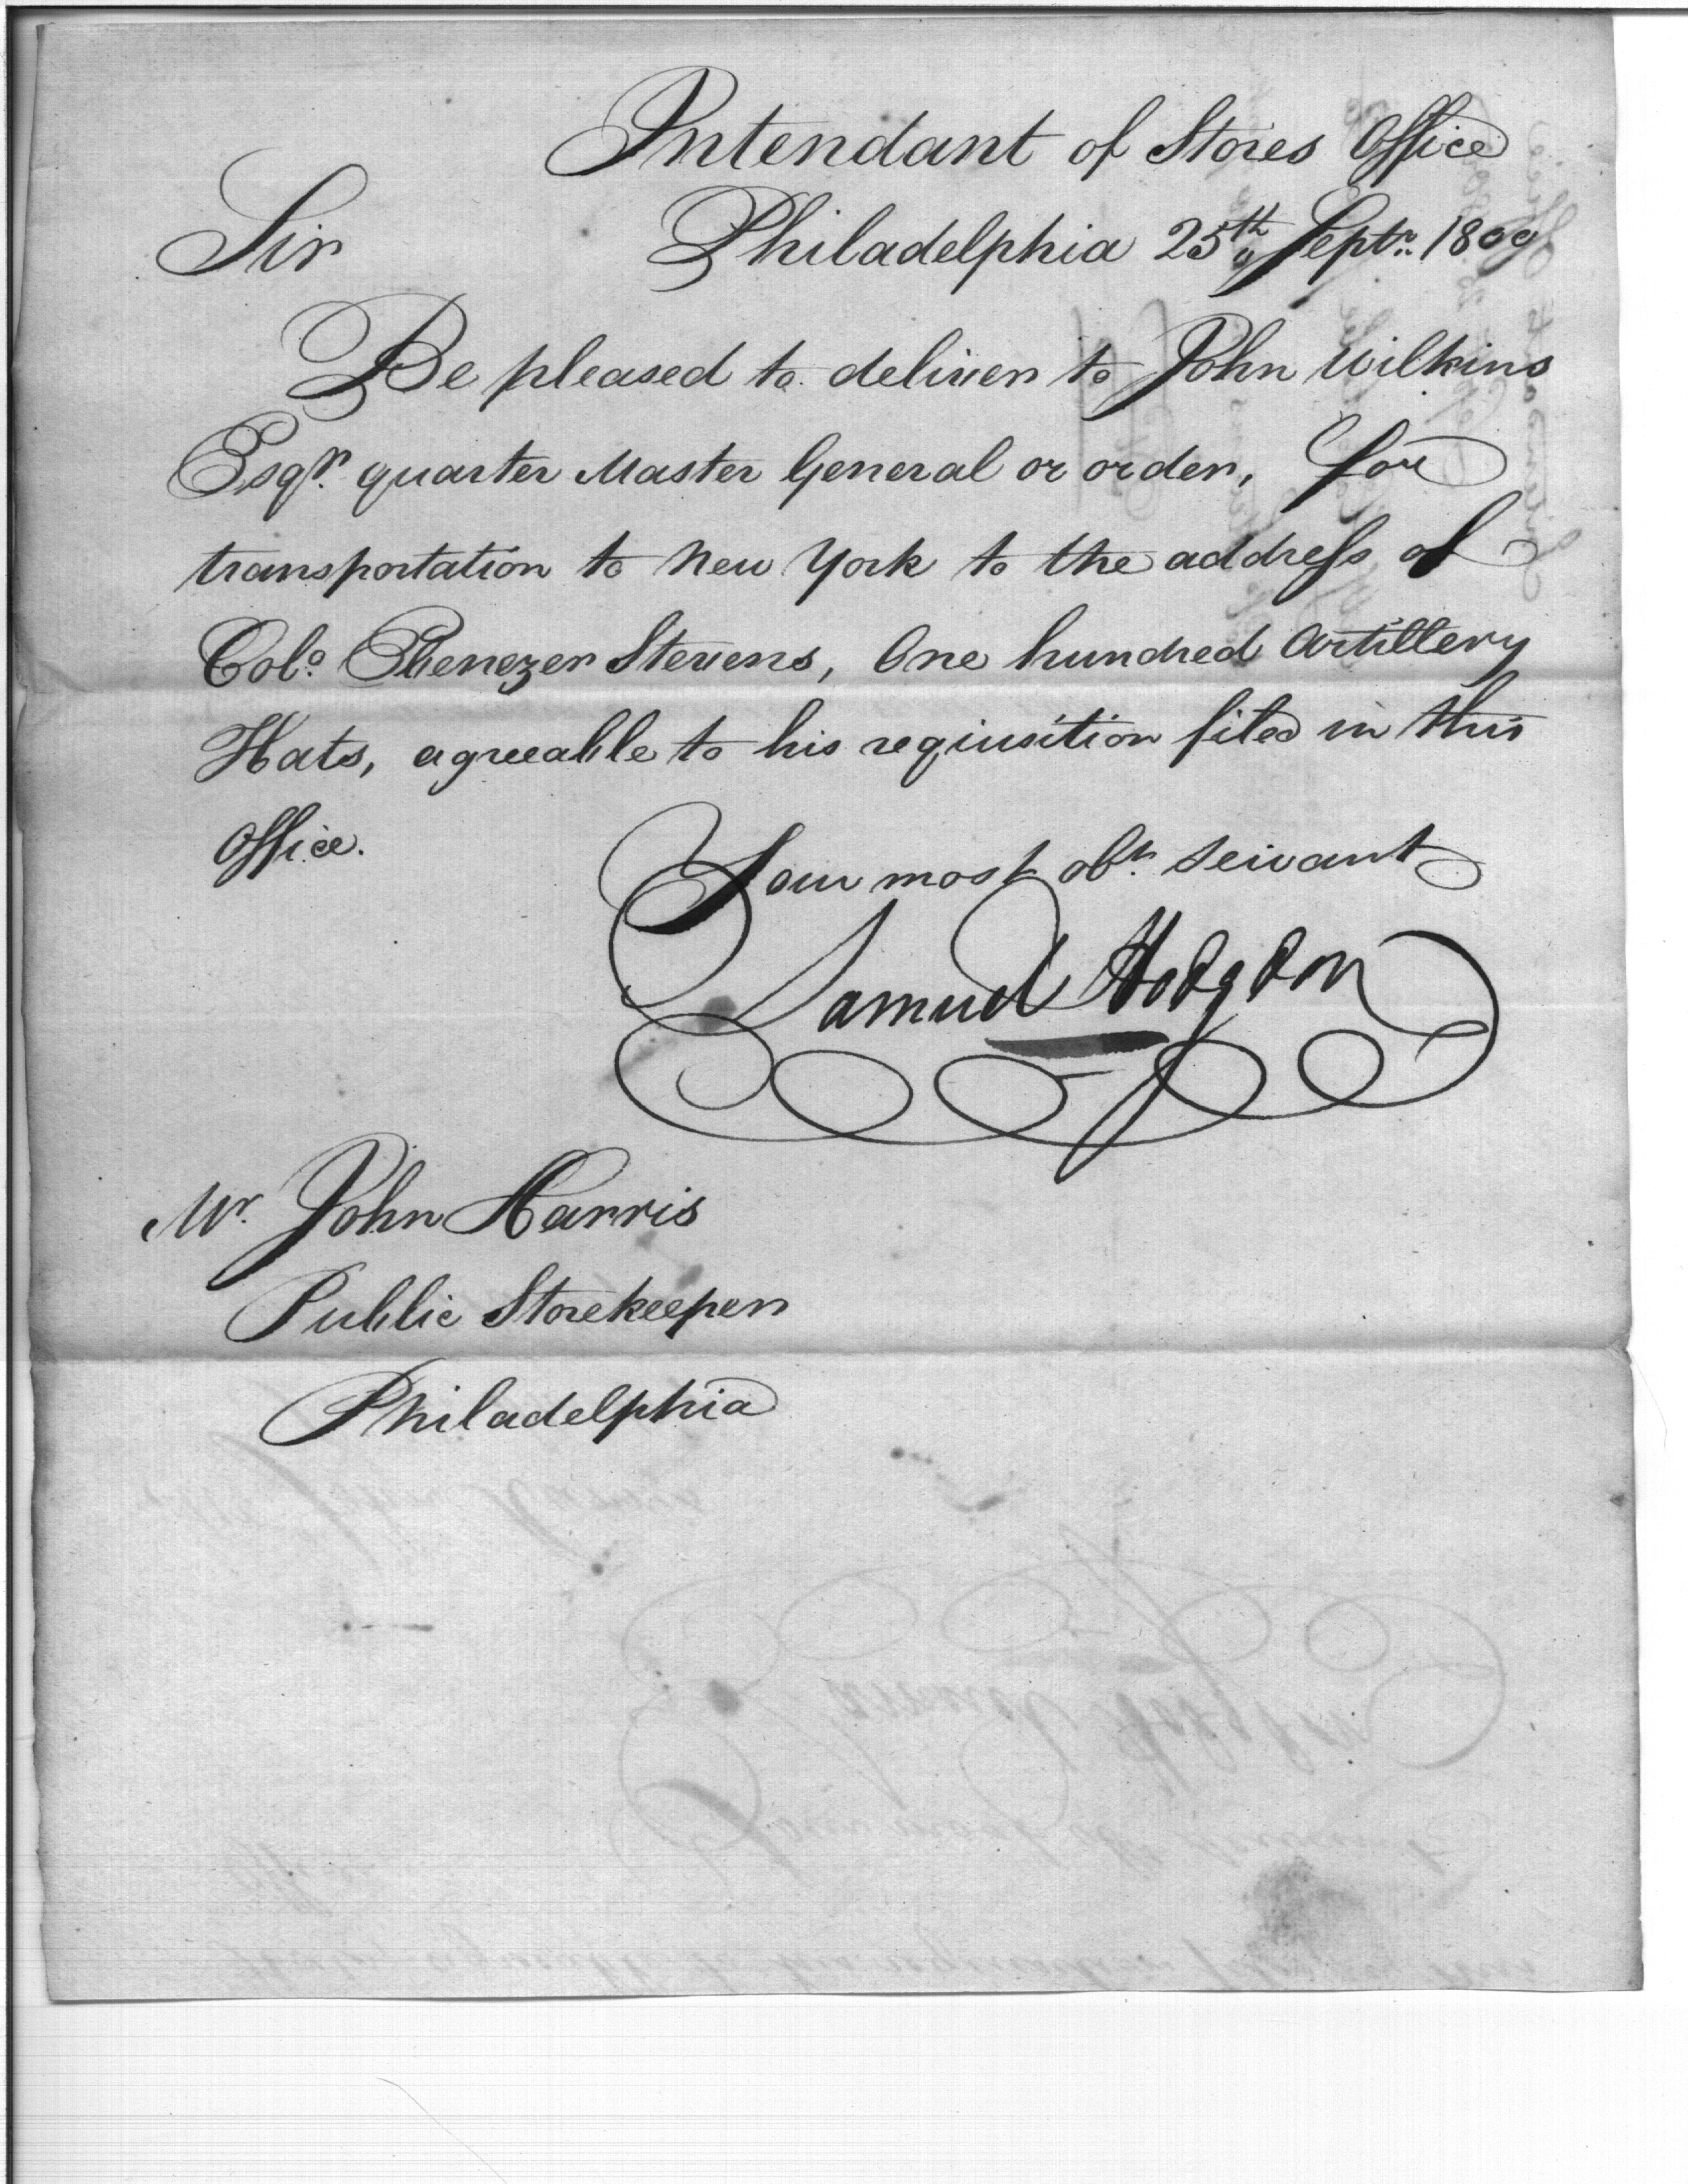 Intendant of Stores Office
Sir Philadelphia 25th Septr. 1800
Be pleased to deliver to John Wilkins
Esqr. quarter Master General or order, for
transportation to New York to the address of
Colo. Ebenezer Stevens, One hundred Artillery
Hats, agreeable to his requisition filed in this
Office.
Your most obt. servant
Samuel Hodgdon
Mr. John Harris
Public Storekeeper
Philadelphia